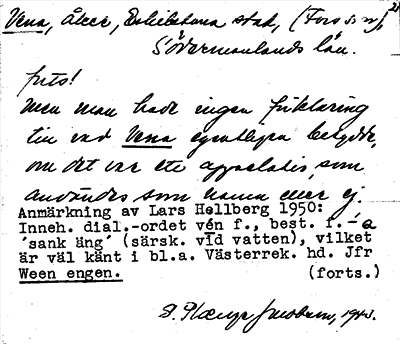 Vena, åker, Eskilstuna stad, (Fors sn), 2
Södermanlands län.
forts!
Men man hade ingen förklaring
till vad Vena egentligen betydde,
om det var ett appellativ, som
användes som namn eller ej.
Anmärkning av Lars Hellberg 1950:
Inneh. dial.-ordet vén f., best. f. -a
'sank äng' (särsk. vid vatten), vilket
är väl känt i bl.a. Västerrek. hd. Jfr
Ween engen. (forts.)
Jacobson, 1943.